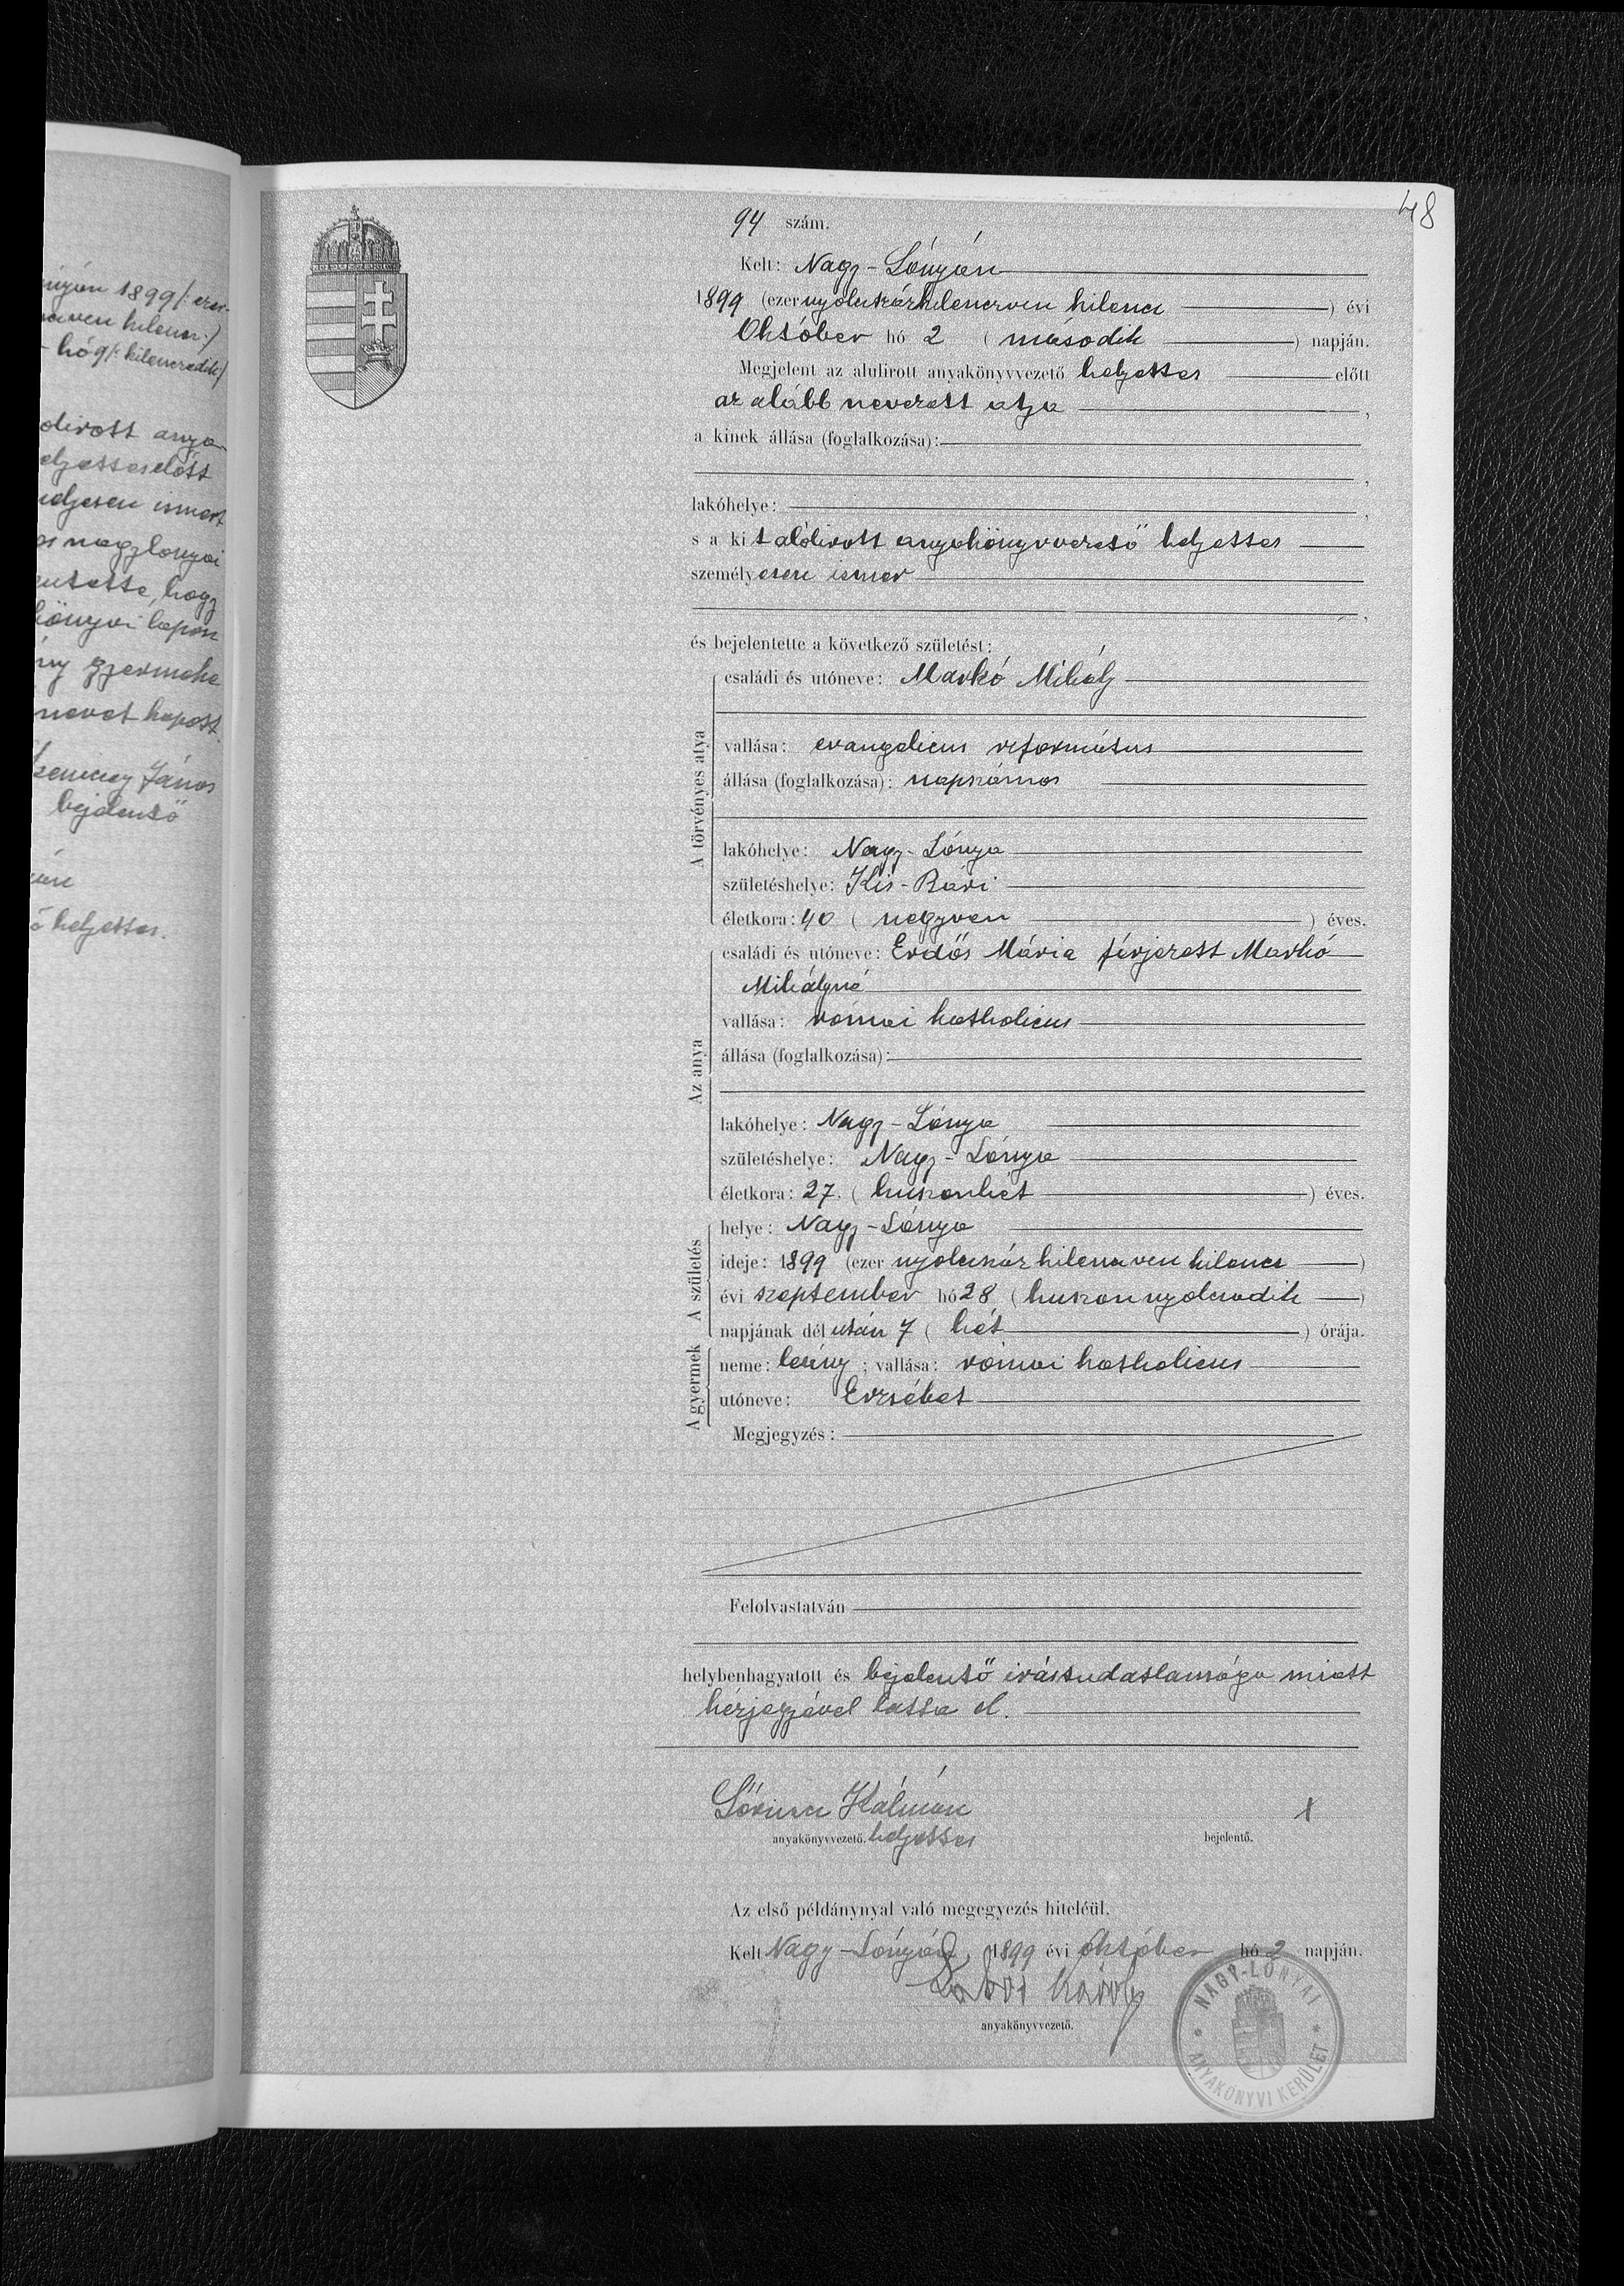 nyán 1899/: ezer-
hó 9/: kilenczedik/
alólirott anya-
helyettes előtt
személyesen ismert
nagylónyai
hogy
könyvi lapon
gyermeke
nevet kapott.
János
bejelentő
helyettes.
48
94 szám.
Kelt: Nagy-Lónyán
1899 (ezer nyolczszázkilenczven kilencz ) évi
Október hó 2 ( második ) napján.
Megjelent az alulirott anyakönyvvezető helyettes előtt
az alább nevezett atya ,
a kinek állása (foglalkozása):
,
lakóhelye: ,
s a kit alólirott anyakönyvvezető helyettes
személyesen ismer
,
és bejelentette a következő születést:
A törvényes atya
családi és utóneve: Markó Mihály
vallása: evangelicus református
állása (foglalkozása): napszámos
lakóhelye: Nagy-Lónya
születéshelye: Kis-Rávi
életkora: 40 ( negyven ) éves.
Az anya
családi és utóneve: Erdős Mária férjezett Markó
Mihályné
vallása: római katholicus
állása (foglalkozása):
lakóhelye: Nagy-Lónya
születéshelye: Nagy-Lónya
életkora: 27. ( huszonhét ) éves.
A születés
helye: Nagy-Lónya
ideje: 1899 (ezer nyolczszáz kilenczven kilencz )
évi szeptember hó 28 ( huszonnyolczadik )
napjának dél után 7 ( hét ) órája.
A gyermek
neme: leány ; vallása: római katholicus
utóneve: Erzsébet
Megjegyzés:
Felolvastatván
helybenhagyatott és bejelentő irástudatlansága miatt
kézjegyével látta el.
Lőrincz Kálmán x
anyakönyvvezető. helyettes bejelentő.
Az első példánynyal való megegyezés hiteléül.
Kelt Nagy-Lónyán, 1899 évi október hó 2 napján.
Károly
anyakönyvvezető.
NAGY-LÓNYAI
ANYAKÖNYVI KERÜLET